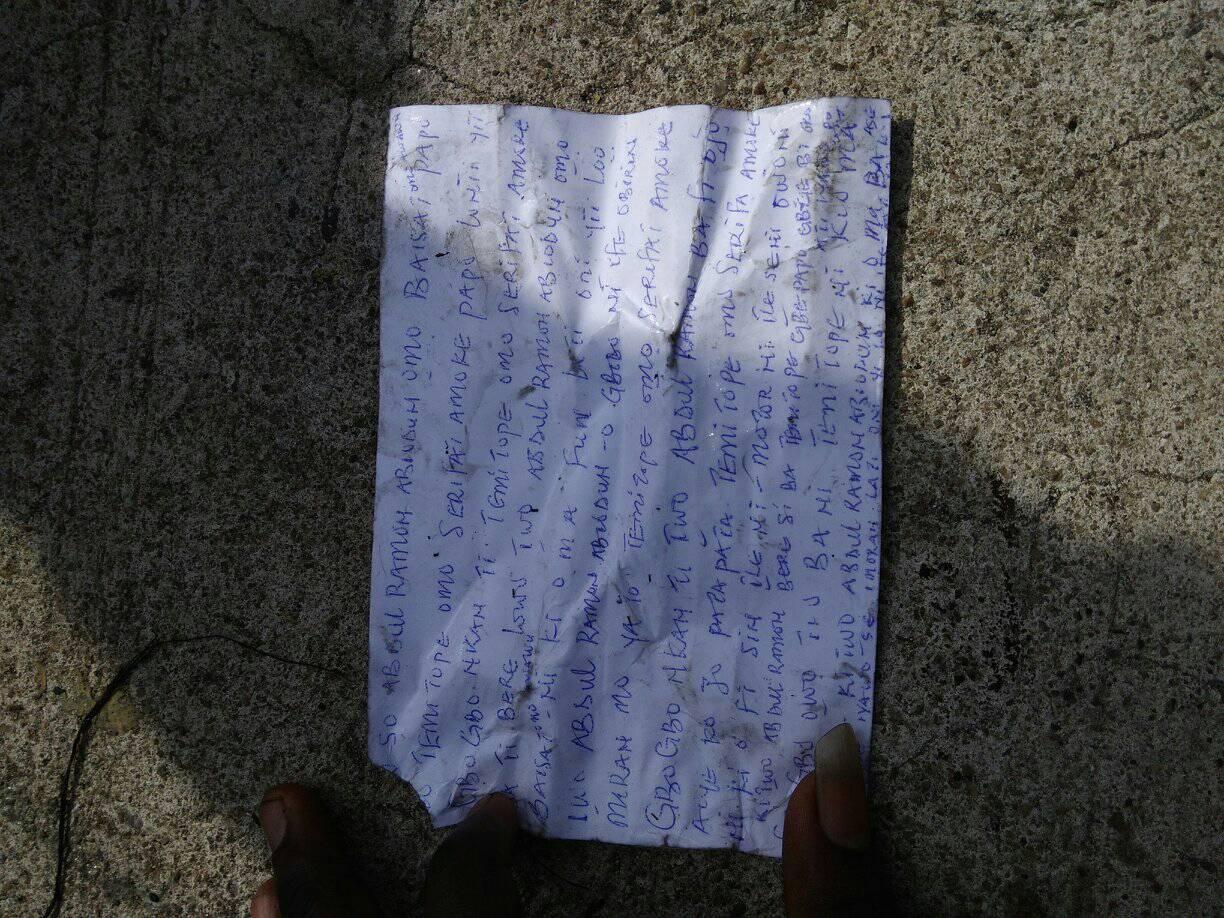 SO ABDUL RAMON ABIODUN OMO BAISAT OMO PAPO
TEMITOPE OMO SERIFAT AMOKE PAPO
GBOGBO NKAN TI TEMITOPE OMO SERIFAT AMOKE
TI BERE LOWO IWO ABDUL RAMON ABIODUN OMO
BAISAT - NI KI O MA FUN LATI ONI YII LOO
IWO ABDUL RAMON ABIODUN - O GBODO NI IFE OBIRIN
MIRAN MO YATO TEMITOPE OMO SERIFAT AMOKE
GBOGBO NKAN TI IWO ABDUL RAMON BA FI OJU
AIYE KO JO PATAPATA TEMITOPE OMO SERIFA AMOKE
NI KI O FI SIN ILE NI - MOTOR NI ILESE NI OWO NI
KI IWO ABDUL RAMON BERE SI BA TEMITOPE GBE PAPO GBELE BI OMO
OWO INU BANI TEMITOPE NI KI O MA
KI IWO ABDUL RAMON ABIODUN KI O MA BA
IMORAN LATI ONI